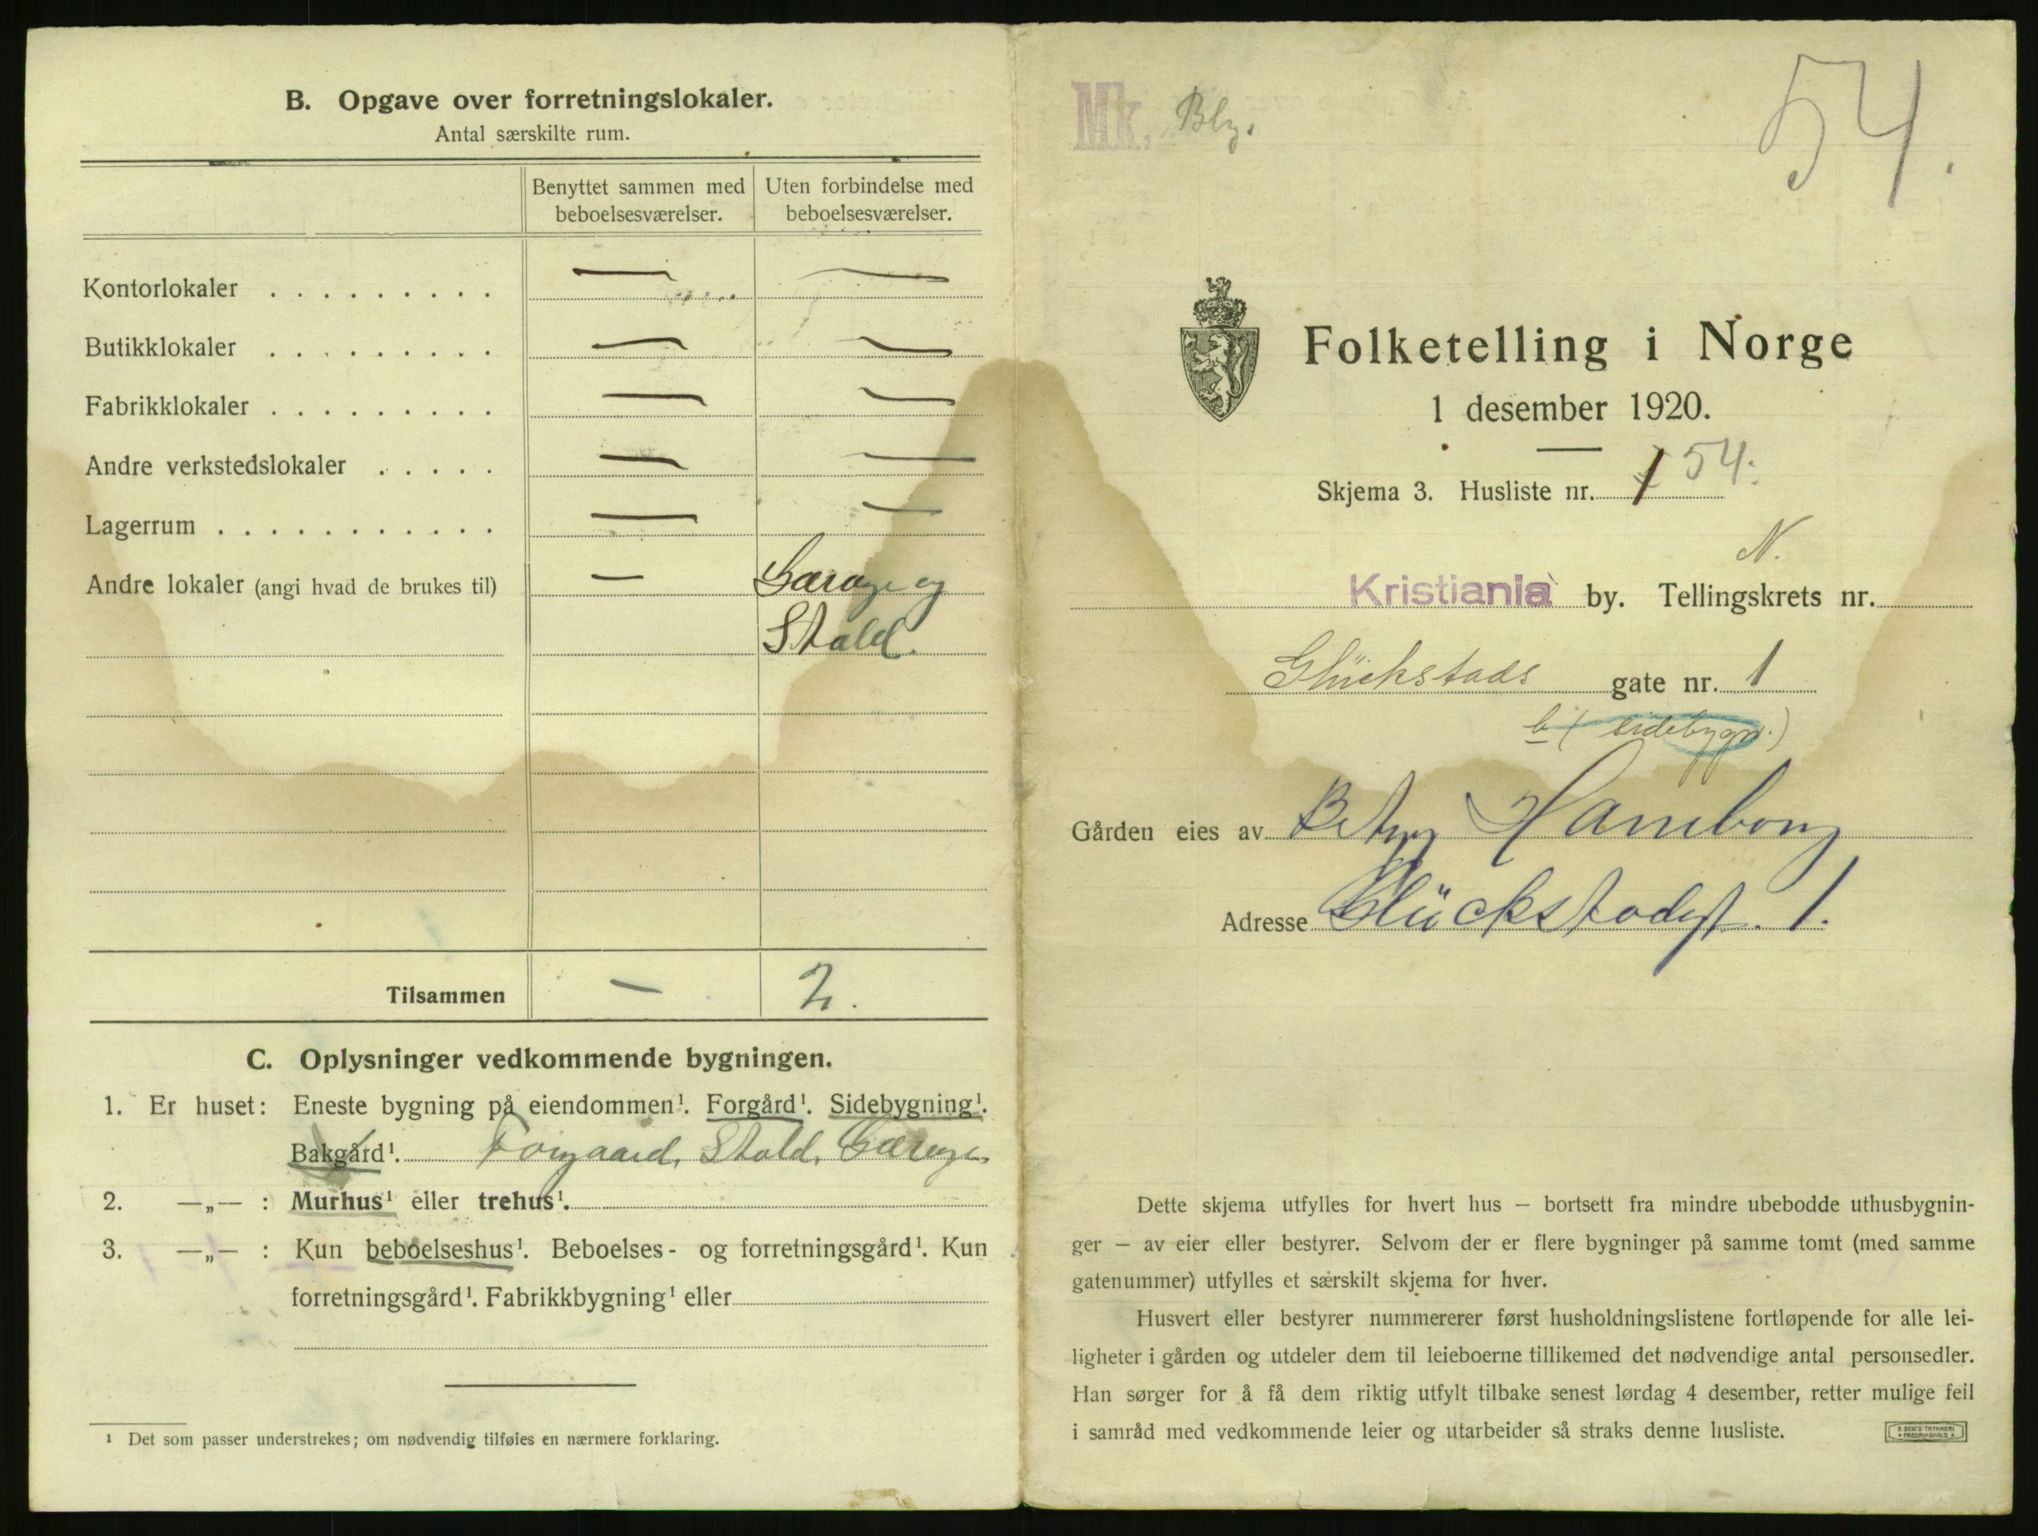 B. Opgave over forretningslokaler.
Antal særskilte rum.
Benyttet sammen med beboelsesværelser.
Uten forbindelse med beboelsesværelser.
Kontorlokaler . . . . . . . . . — —
Butikklokaler . . . . . . . . . — —
Fabrikklokaler . . . . . . . . . — —
Andre verkstedslokaler . . . . . — —
Lagerrum . . . . . . . . . . . — —
Andre lokaler (angi hvad de brukes til) — Garage og
Stald.
Tilsammen — 2.
C. Oplysninger vedkommende bygningen.
1. Er huset: Eneste bygning på eiendommen¹. Forgård¹. Sidebygning¹.
Bakgård¹. Forgaard, Stald, Garage.
2. —„— : Murhus¹ eller trehus¹.
3. —„— : Kun beboelseshus¹. Beboelses- og forretningsgård¹. Kun
forretningsgård¹. Fabrikkbygning¹ eller
¹ Det som passer understrekes; om nødvendig tilføies en nærmere forklaring.
Mk. Blg.
54.
Folketelling i Norge
1 desember 1920.
Skjema 3. Husliste nr. 1 54.
N.
Kristiania by. Tellingskrets nr.
Glückstads gate nr. 1
b (sidebygn.)
Gården eies av Betzy Hamborg
Adresse Glückstadgt. 1.
Dette skjema utfylles for hvert hus — bortsett fra mindre ubebodde uthusbygnin-
ger — av eier eller bestyrer. Selvom der er flere bygninger på samme tomt (med samme
gatenummer) utfylles et særskilt skjema for hver.
Husvert eller bestyrer nummererer først husholdningslistene fortløpende for alle lei-
ligheter i gården og utdeler dem til leieboerne tillikemed det nødvendige antal personsedler.
Han sørger for å få dem riktig utfylt tilbake senest lørdag 4 desember, retter mulige feil
i samråd med vedkommende leier og utarbeider så straks denne husliste.